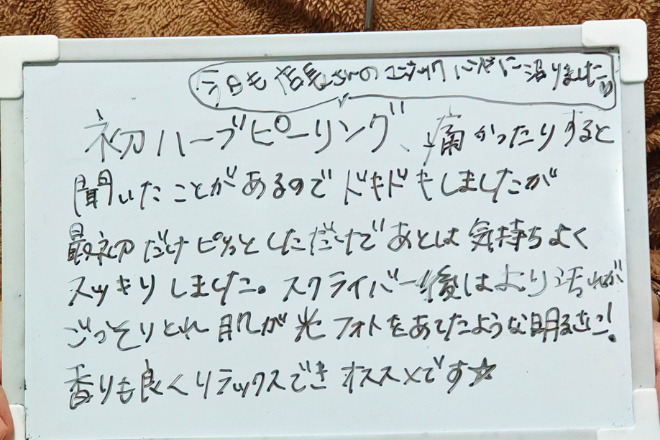 今日も店長さんのゴッドハンドに沼りました
初ハーブピーリング、痛かったりすると
聞いたことがあるのでドキドキしましたが
最初だけピリッとしただけであとは気持ちよく
スッキリしました。スクライバー後はより汚れが
ごっそりとれ肌が光フォトをあてたような明るさに!
香りも良くリラックスできオススメです☆